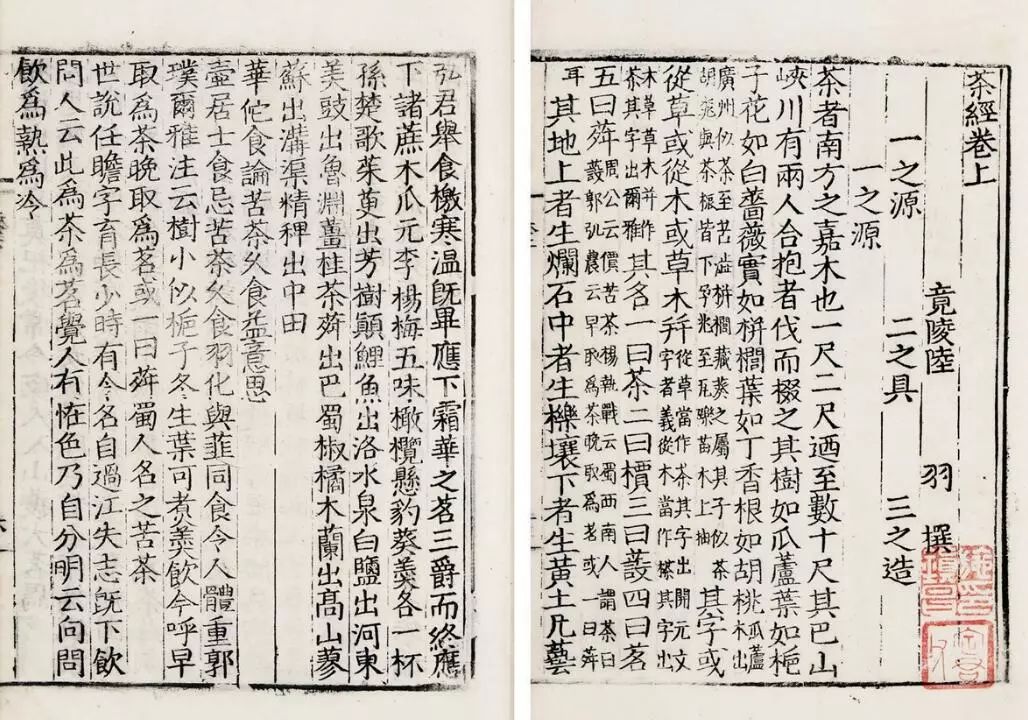 茶經卷上
竟陵陸 羽 撰
一之源 二之具 三之造
一之源
茶者南方之嘉木也一尺二尺迺至數十尺其巴山
峽川有兩人合抱者伐而掇之其樹如瓜蘆葉如梔
子花如白薔薇實如栟櫚葉如丁香根如胡桃瓜蘆木出
廣州似茶至苦澁栟櫚藏葵之屬其子似茶胡桃與茶根皆下孕兆至瓦礫苗木上抽其字或
從草或從木或草木幷從草當作茶其字出開元文字者義從木當作㮈其字出
木草草木并作茶其字出爾雅其名一曰茶二曰檟三曰蔎四曰茗
五曰荈周公云價苦荼楊執戟云蜀西南人謂茶曰蔎郭弘農云早取爲茶晚取爲老或一曰荈
耳其地上者生爛石中者生櫟壤下者生黃土凡藝
弘君舉食檄寒温旣畢應下霜華之茗三爵而終應
下諸蔗木瓜元李楊梅五味橄欖懸豹葵羹各一杯
孫楚歌茱萸出芳樹顛鯉魚出洛水泉白鹽出河東
美豉出魯淵薑桂茶荈出巴蜀椒橘木蘭出高山蓼
蘇出溝渠精稗出中田
華佗食論苦荼久食益意思
壺居士食忌苦茶久食羽化與韮同食令人體重郭
璞爾雅注云樹小似梔子冬生葉可煮羹飲今呼早
取爲茶晚取爲茗或一曰荈蜀人名之苦荼
世說任瞻字育長少時有令名自過江失志旣下飲
問人云此爲茶爲茗覺人有恠色乃自分明云向問
飲爲熱爲冷